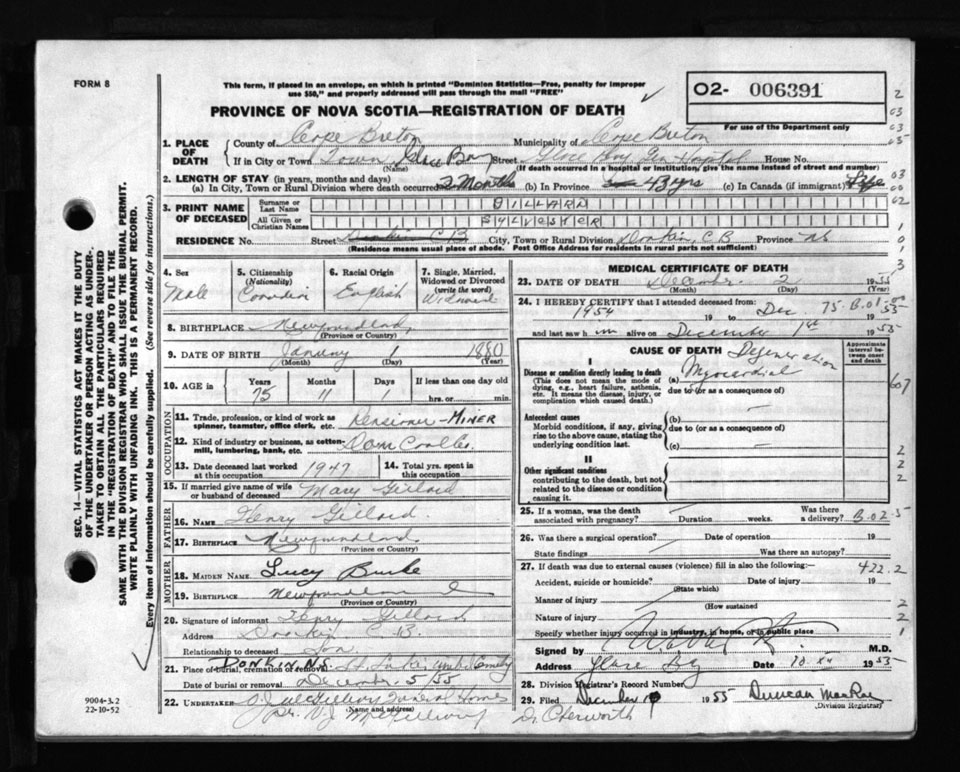 FORM 8
This form, if placed in an envelope, on which is printed "Dominion Statistics—Free, penalty for improper
use $50," and properly addressed will pass through the mail "FREE"
02- 006391
For use of the Department only
PROVINCE OF NOVA SCOTIA—REGISTRATION OF DEATH
1. PLACE OF DEATH
County of Cape Breton Municipality of Cape Breton
If in City or Town Town Glace Bay Street Glace Bay Gen Hospital House No.
(Name) (If death occurred in a hospital or institution, give the name instead of street and number)
2. LENGTH OF STAY (in years, months and days)
(a) In City, Town or Rural Division where death occurred 2 Months (b) In Province 43 yrs (c) In Canada (if immigrant) Life
3. PRINT NAME OF DECEASED
Surname or Last Name GILLARD
All Given or Christian Names SYLVESTER
RESIDENCE No. Street Donkin C B City, Town or Rural Division Donkin, C B Province NS
(Residence means usual place of abode. Post Office Address for residents in rural parts not sufficient)
4. Sex Male
5. Citizenship (Nationality)
6. Racial Origin English
7. Single, Married, Widowed or Divorced (write the word)
8. BIRTHPLACE Newfoundland
(Province or Country)
9. DATE OF BIRTH January 1 1880
(Month) (Day) (Year)
10. AGE in Years 75 Months 11 Days If less than one day old hrs. or min.
OCCUPATION
11. Trade, profession, or kind of work as spinner, teamster, office clerk, etc. Pensioner - MINER
12. Kind of industry or business, as cotton-mill, lumbering, bank, etc. Dom Coal Co.
13. Date deceased last worked at this occupation 1947
14. Total yrs. spent in this occupation
15. If married give name of wife or husband of deceased Mary Gillard
FATHER
16. NAME Henry Gillard
17. BIRTHPLACE Newfoundland
(Province or Country)
MOTHER
18. MAIDEN NAME Lucy Burke
19. BIRTHPLACE Newfoundland
(Province or Country)
20. Signature of informant Henry Gillard
Address Donkin C.B.
Relationship to deceased Son
21. Place of burial, cremation or removal DONKIN N.S. St. Luke's
Date of burial or removal December 5/55
22. UNDERTAKER Funeral Home
(Name and address)
9004-3.2
22-10-52
MEDICAL CERTIFICATE OF DEATH
23. DATE OF DEATH December 2 1955
(Month) (Day) (Year)
24. I HEREBY CERTIFY that I attended deceased from:
1954 19 to Dec 1955
75-B.01-00
and last saw him alive on December 1st 1955
CAUSE OF DEATH
Approximate interval between onset and death
I
Disease or condition directly leading to death
(This does not mean the mode of dying, e.g., heart failure, asthenia, etc. It means the disease, injury, or complication which caused death.)
(a) Myocardial Degeneration
due to (or as a consequence of)
Antecedent causes
Morbid conditions, if any, giving rise to the above cause, stating the underlying condition last.
(b)
due to (or as a consequence of)
(c)
II
Other significant conditions
contributing to the death, but not related to the disease or condition causing it.
25. If a woman, was the death associated with pregnancy? Duration weeks. Was there a delivery? B.02.5
26. Was there a surgical operation? Date of operation 19
State findings Was there an autopsy?
27. If death was due to external causes (violence) fill in also the following:- 422.2
Accident, suicide or homicide? Date of injury 19
(State which)
Manner of injury
(How sustained
Nature of injury
Specify whether injury occurred in industry, in home, or in public place
Signed by M.D.
Address Glace Bay Date 10 XII 1955
28. Division Registrar's Record Number
29. Filed December 19 1955 Duncan MacRae
(Division Registrar)
SEC. 14—VITAL STATISTICS ACT MAKES IT THE DUTY
OF THE UNDERTAKER OR PERSON ACTING AS UNDER-
TAKER TO OBTAIN ALL THE PARTICULARS REQUIRED
IN THE "REGISTRATION OF DEATH" AND TO FILE THE
SAME WITH THE DIVISION REGISTRAR WHO SHALL ISSUE THE BURIAL PERMIT.
WRITE PLAINLY WITH UNFADING INK. THIS IS A PERMANENT RECORD.
Every item of information should be carefully supplied. (See reverse side for instructions.)